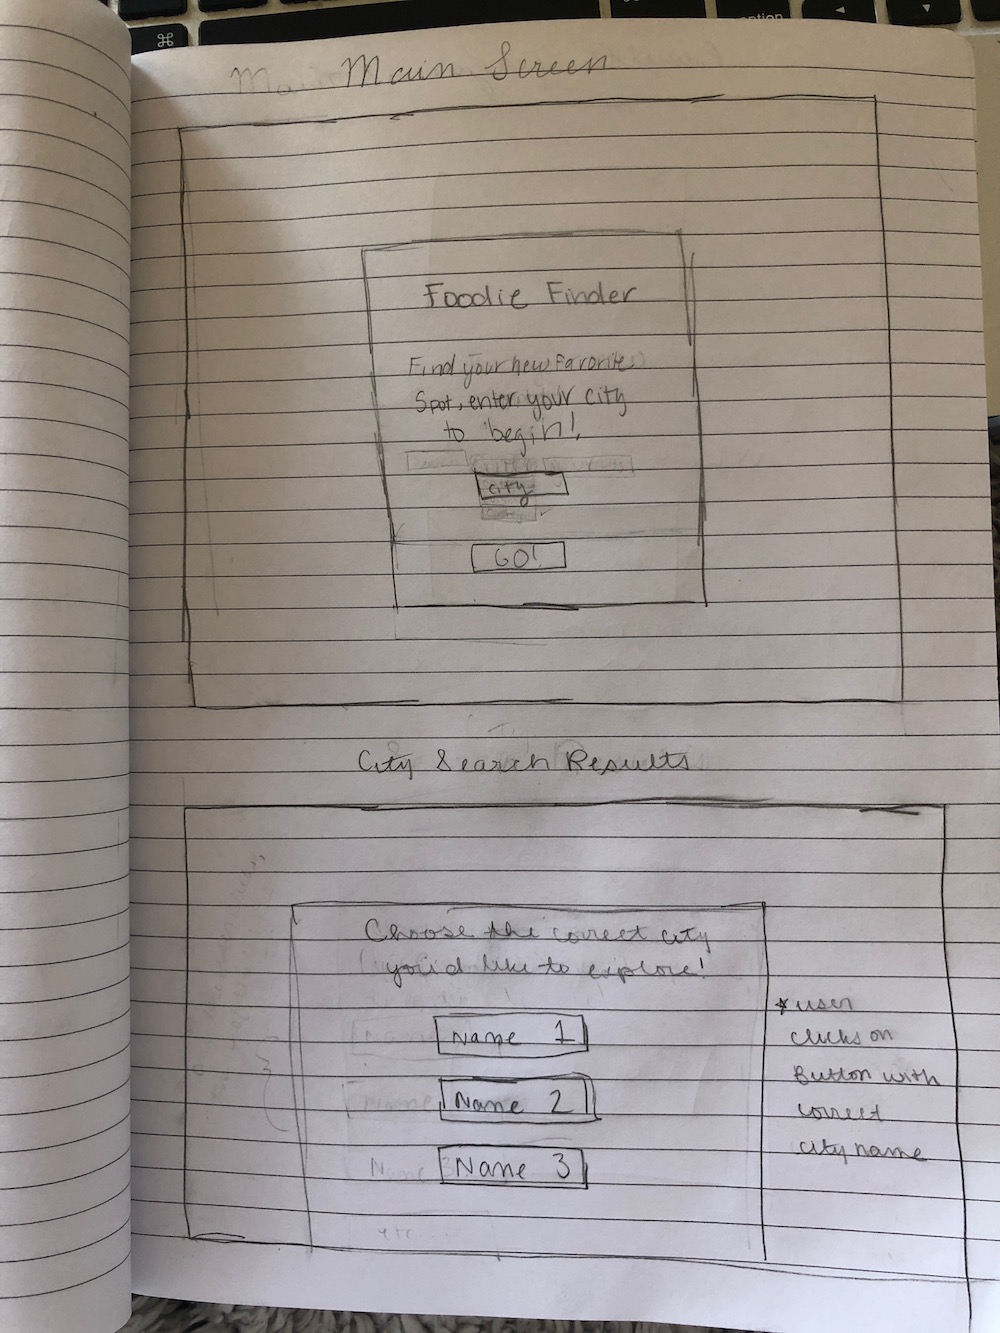 option
⌘
Main Screen
Foodie Finder
Find your new Favorite
Spot, enter your city
to begin!
city
GO!
City Search Results
Choose the correct city
you'd like to explore!
Name 1
Name 2
Name 3
* user
clicks on
Button with
correct
city name